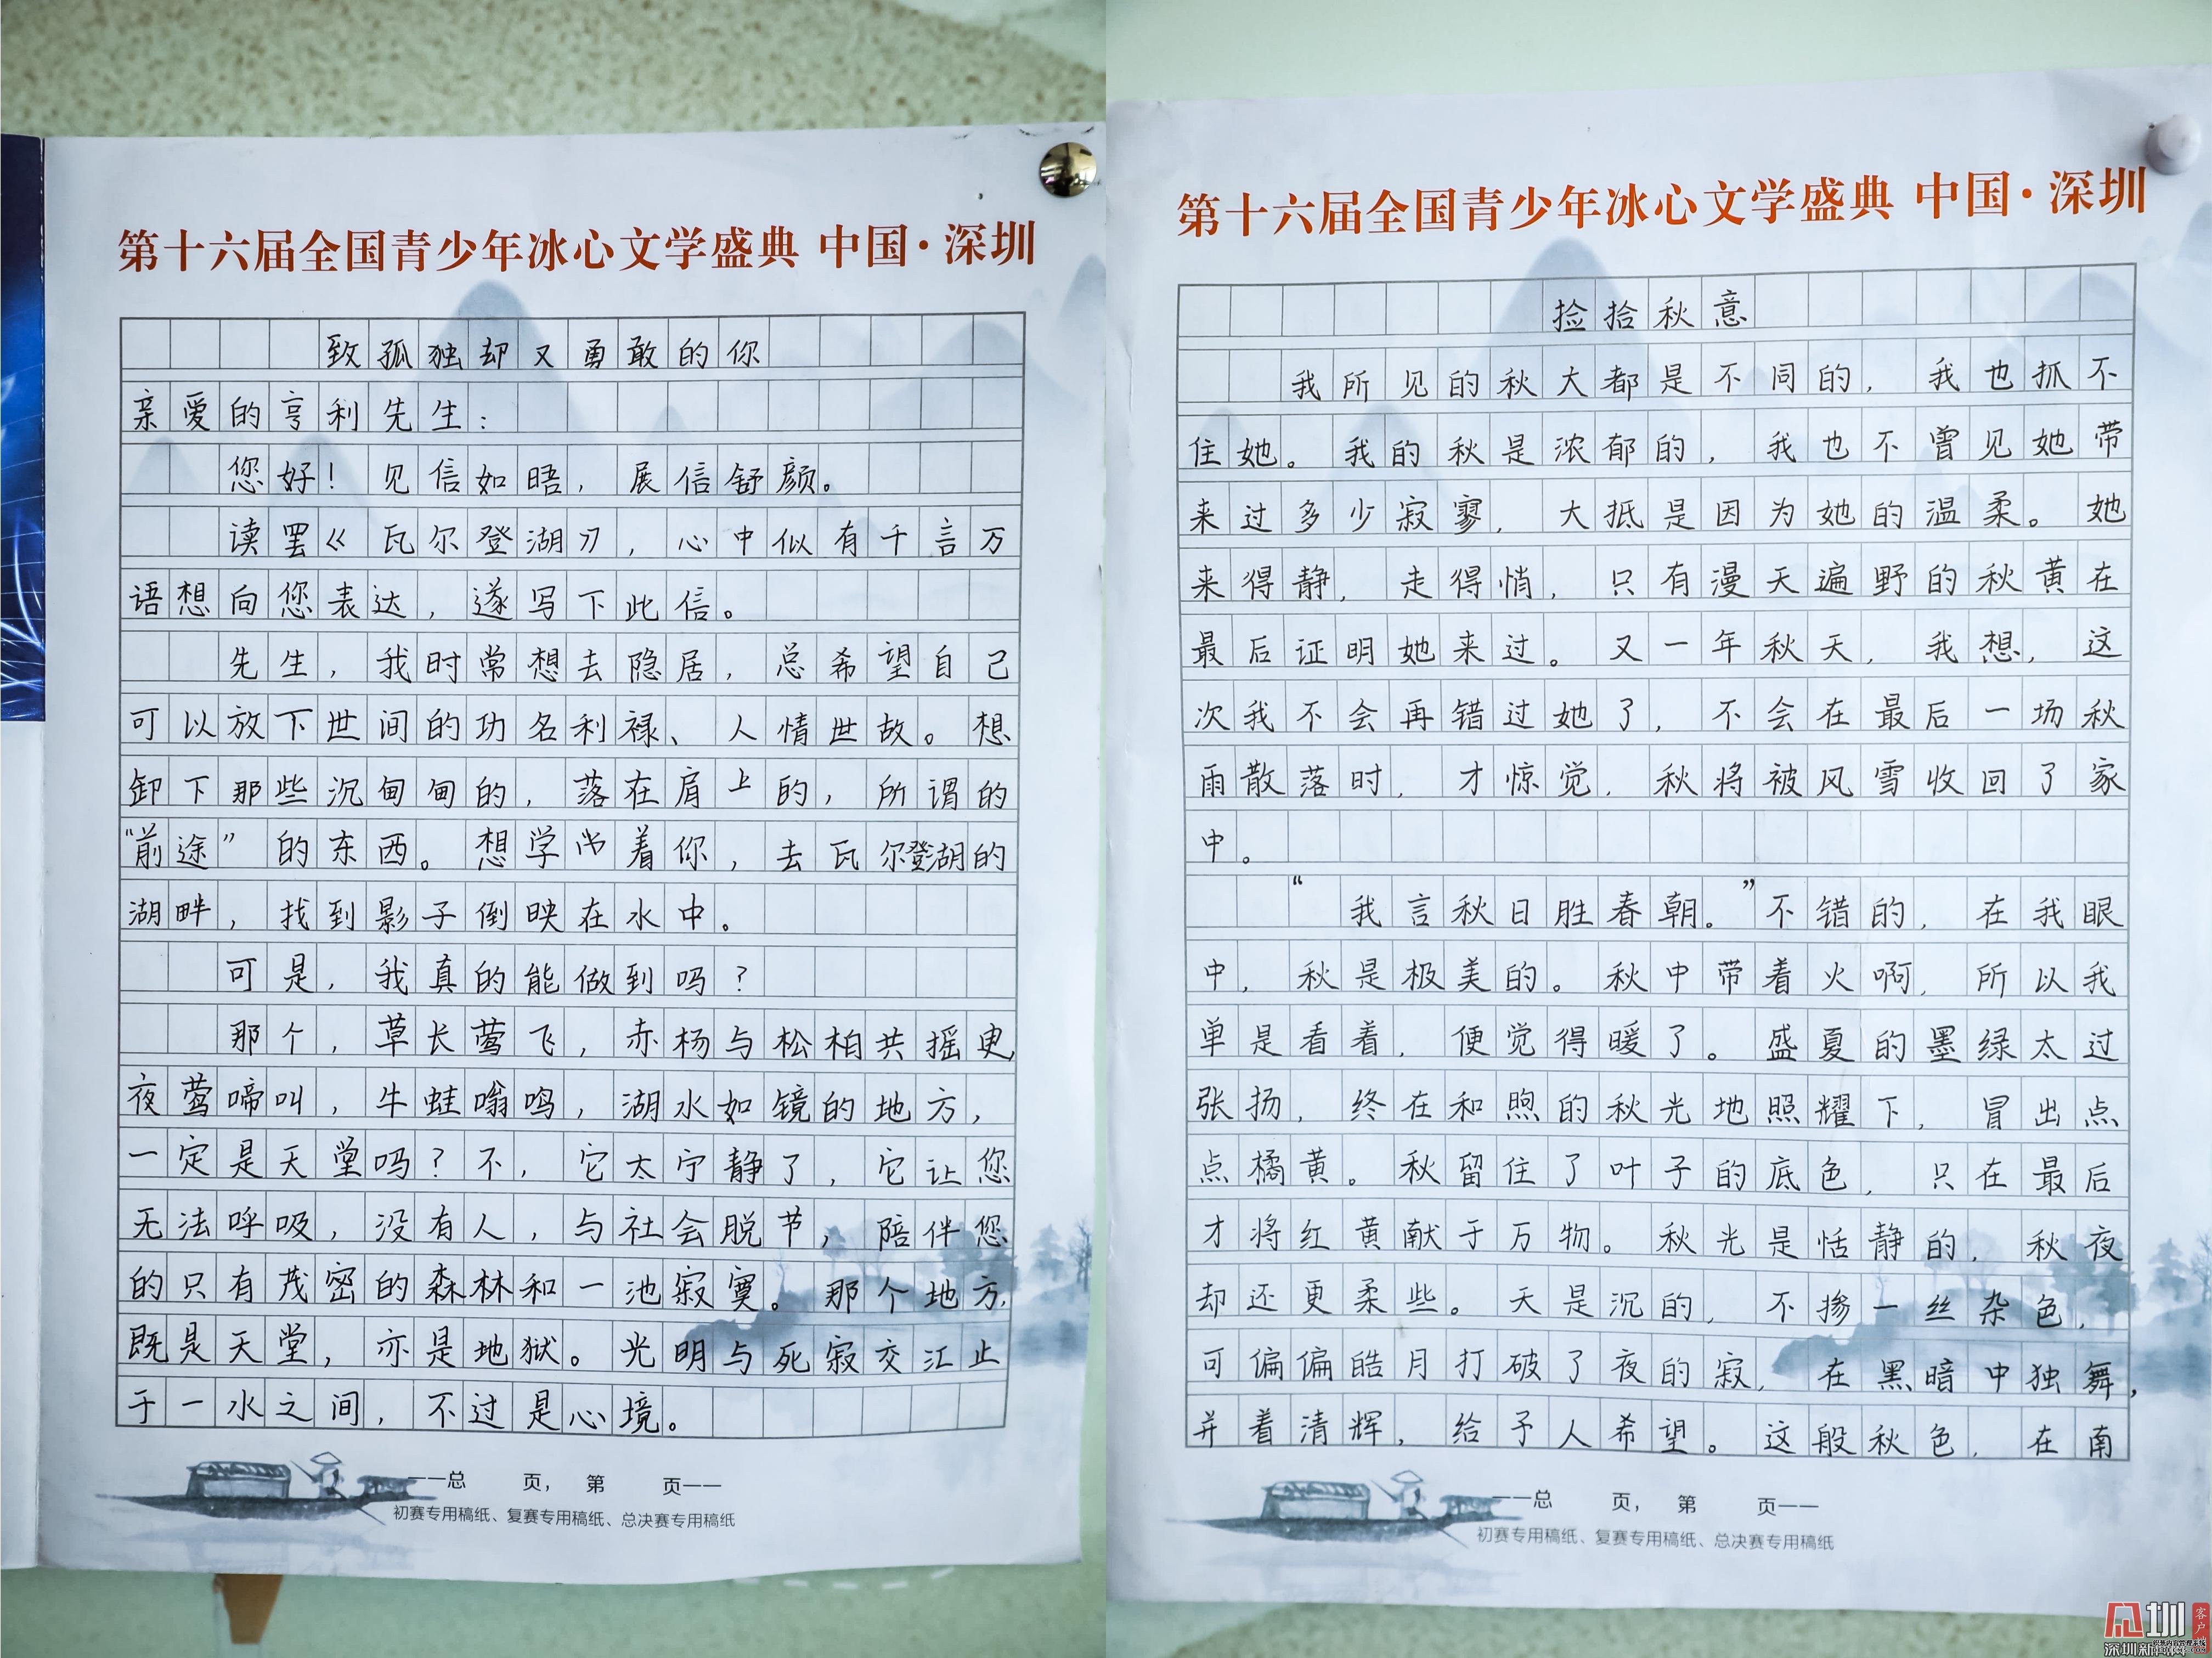 第十六届全国青少年冰心文学盛典 中国·深圳
致孤独却又勇敢的你
亲爱的亨利先生：
您好！见信如晤，展信舒颜。
读罢《瓦尔登湖》，心中似有千言万
语想向您表达，遂写下此信。
先生，我时常想去隐居，总希望自己
可以放下世间的功名利禄、人情世故。想
卸下那些沉甸甸的，落在肩上的，所谓的
“前途”的东西。想学着你，去瓦尔登湖的
湖畔，找到影子倒映在水中。
可是，我真的能做到吗？
那个，草长莺飞，赤杨与松柏共摇曳，
夜莺啼叫，牛蛙嗡鸣，湖水如镜的地方，
一定是天堂吗？不，它太宁静了，它让您
无法呼吸，没有人，与社会脱节，陪伴您
的只有茂密的森林和一池寂寞。那个地方，
既是天堂，亦是地狱。光明与死寂交汇止
于一水之间，不过是心境。
一一总 页，第 页一一
初赛专用稿纸、复赛专用稿纸、总决赛专用稿纸
第十六届全国青少年冰心文学盛典 中国·深圳
捡拾秋意
我所见的秋大都是不同的，我也抓不
住她。我的秋是浓郁的，我也不曾见她带
来过多少寂寥，大抵是因为她的温柔。她
来得静，走得悄，只有漫天遍野的秋黄在
最后证明她来过。又一年秋天，我想，这
次我不会再错过她了，不会在最后一场秋
雨散落时，才惊觉，秋将被风雪收回了家
中。
“我言秋日胜春朝。”不错的，在我眼
中，秋是极美的。秋中带着火啊，所以我
单是看着，便觉得暖了。盛夏的墨绿太过
张扬，终在和煦的秋光地照耀下，冒出点
点橘黄。秋留住了叶子的底色，只在最后
才将红黄献于万物。秋光是恬静的，秋夜
却还更柔些。天是沉的，不掺一丝杂色，
可偏偏皓月打破了夜的寂，在黑暗中独舞，
并着清辉，给予人希望。这般秋色，在南
一一总 页，第 页一一
初赛专用稿纸、复赛专用稿纸、总决赛专用稿纸
圳
客户端
深圳新闻网